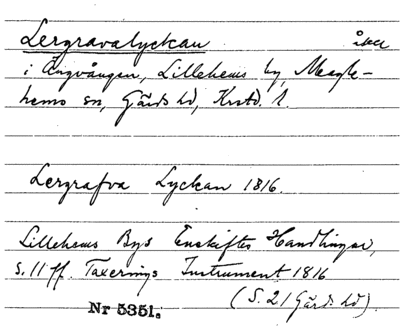 Lergravalyckan åker
i Ängvången, Lillehems by, Magle-
hems sn, Gärds hd, Krstd. l.
Lergrafva Lyckan 1816.
Lillehems Bys Enskiftes Handlingar,
s. 11 ff. Taxerings Instrument 1816
(S. 21 Gärds hd).
Nr 5351.